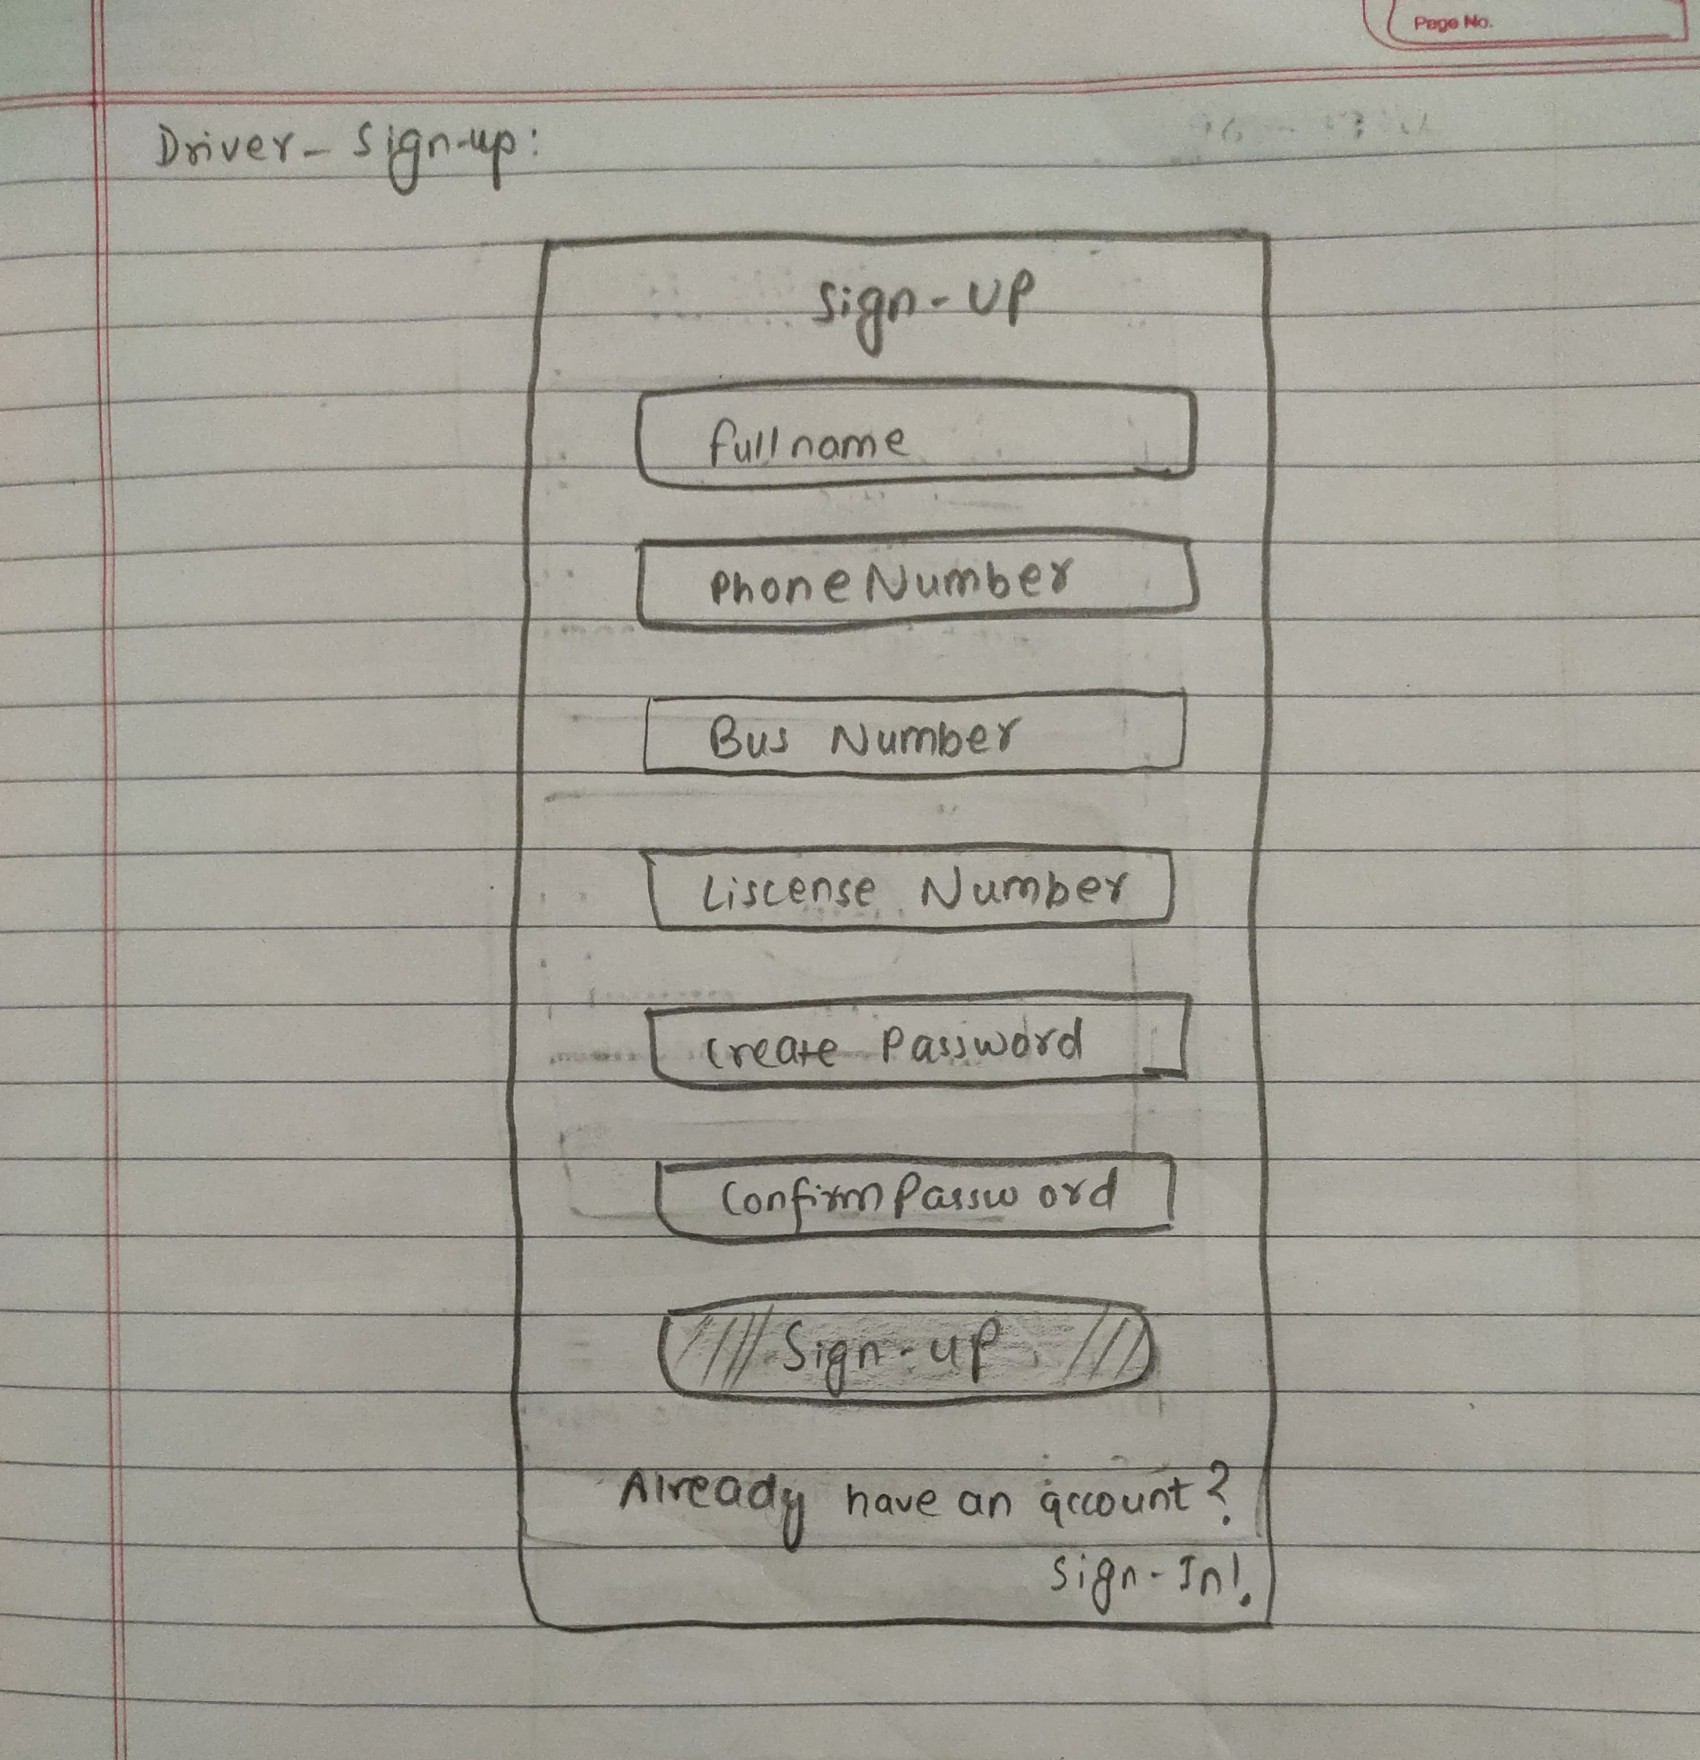 Page No.
Driver - Sign-up:
Sign-UP
full name
Phone Number
Bus Number
Liscense Number
Create Password
Confirm Password
Sign-up
Already have an account?
Sign-In!